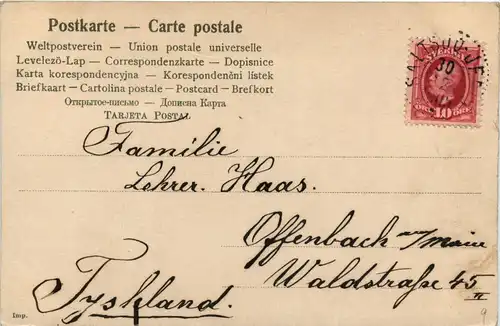 Postkarte — Carte postale
Weltpostverein — Union postale universelle
Levelezö-Lap — Correspondenzkarte — Dopisnice
Karta korespondencyjna — Korespondenční lístek
Briefkaart — Cartolina postale — Postcard — Brefkort
Открытое-письмо — Дописна Карта
TARJETA POSTAL
30
10
Familie
Lehrer. Haas.
Offenbach am/Main
Waldstraße 45
Tyskland.
Imp.
9